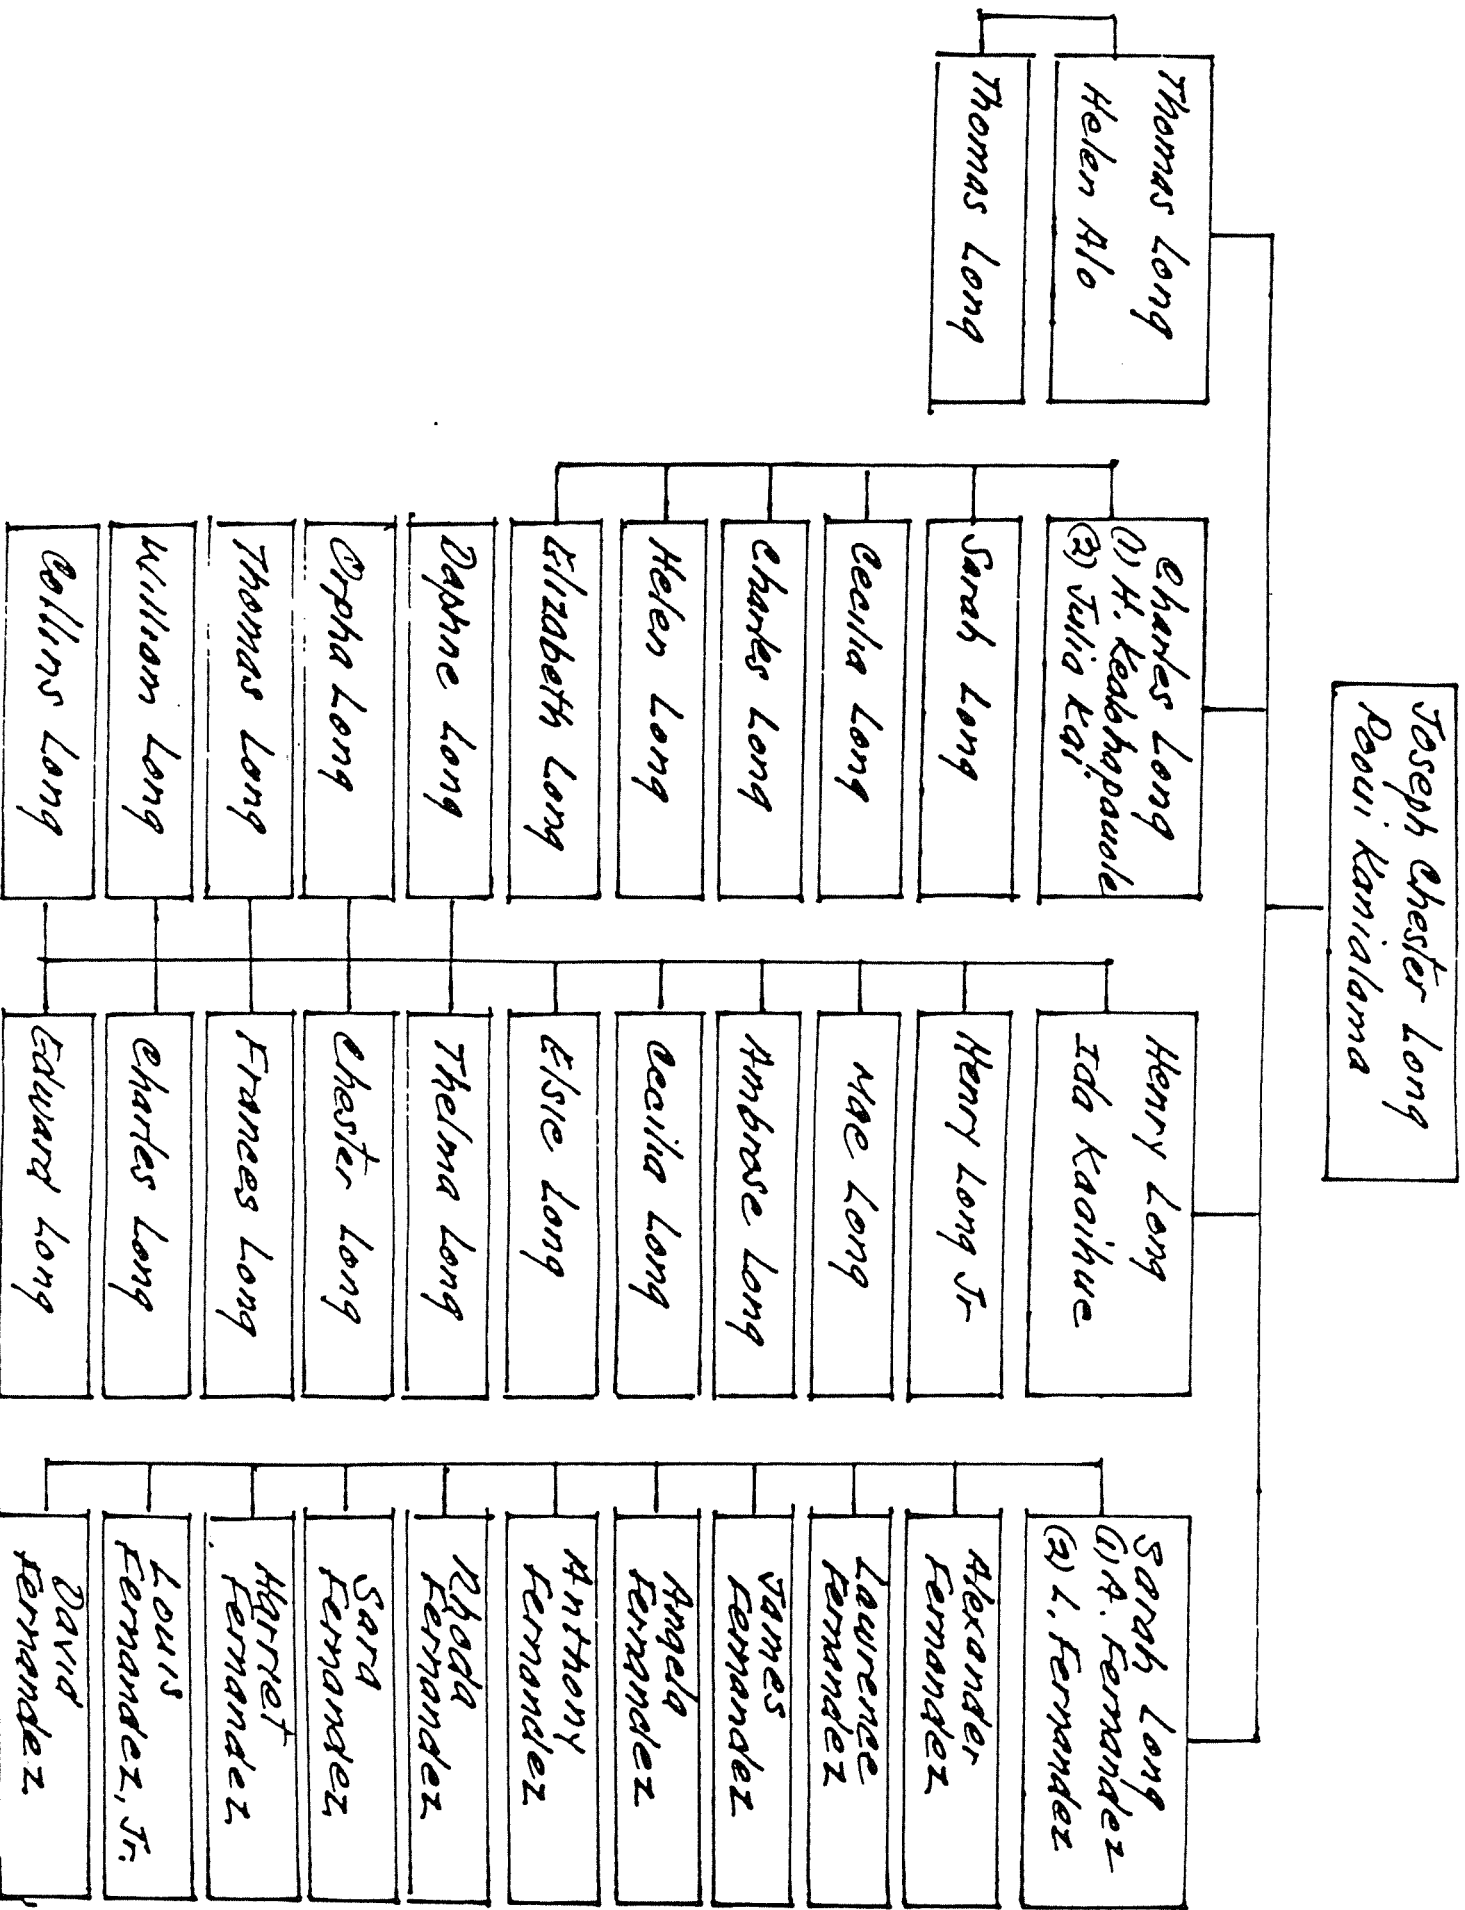 Joseph Chester Long
Peoui Kanialama
Thomas Long
Helen Alo
Thomas Long
Charles Long
(1) H. Keabhapauole
(2) Julia Kai
Sarah Long
Cecilia Long
Charles Long
Helen Long
Elizabeth Long
Daphne Long
Orpha Long
Thomas Long
William Long
Collins Long
Henry Long
Ida Kaaihue
Henry Long Jr
Mae Long
Ambrose Long
Cecilia Long
Elsie Long
Thelma Long
Chester Long
Frances Long
Charles Long
Edward Long
Sarah Long
(1) A. Fernandez
(2) L. Fernandez
Alexander
Fernandez
Lawrence
Fernandez
James
Fernandez
Angela
Fernandez
Anthony
Fernandez
Rhoda
Fernandez
Sara
Fernandez
Harriet
Fernandez
Louis
Fernandez, Jr.
David
Fernandez